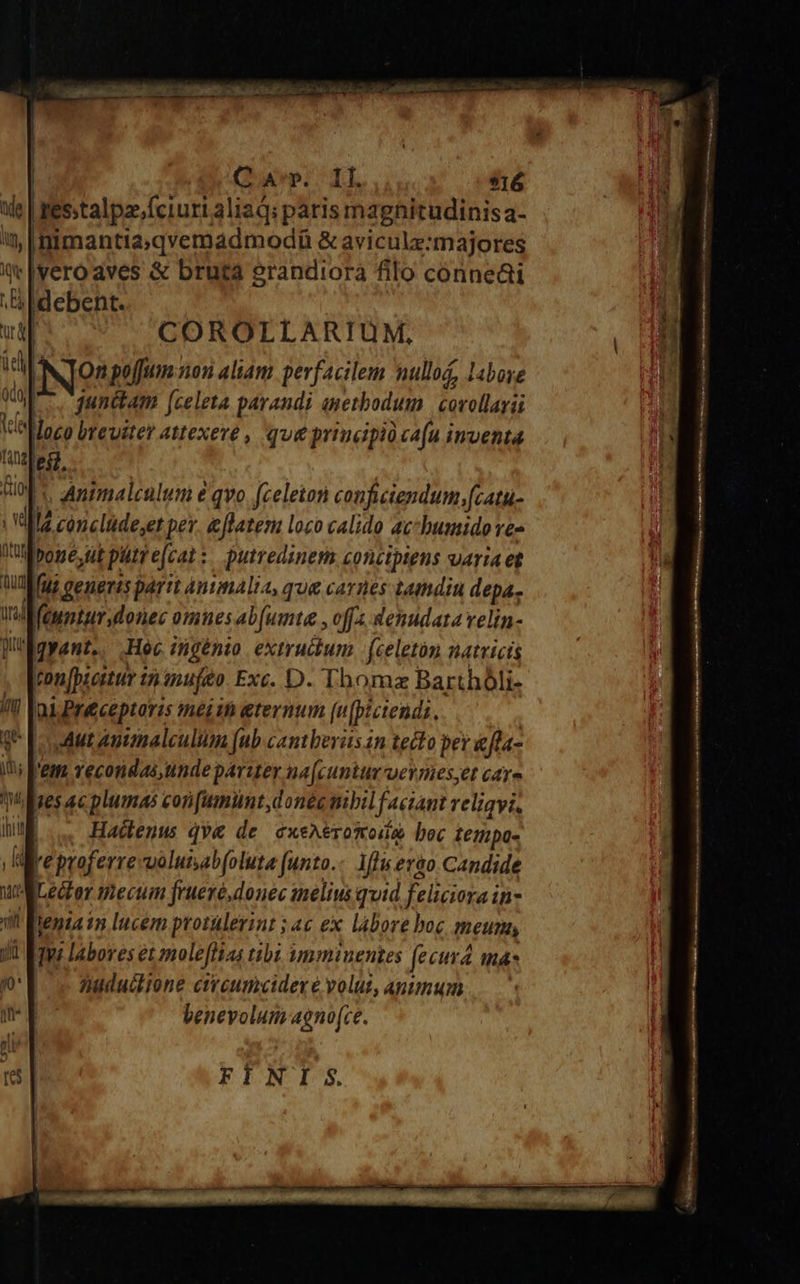 CAP. II. 116
res,talpæ,ſciuri aliaq; paris magnitudinis a-
nimantia,qvemadmodũ & aviculæ:majores
vero aves & bruta grandiora filo connecti
debent.
COROLLARIUM.
NOn poſſum non aliam perfacilem nulloq; labore
junctam ſceleta parandi methodum corollarii
loco breviter attexere, quæ principiò caſu inventa
eſt.
Animalculum è qvo ſceleton conficiendum,ſcatu-
lâ conclude,et per æſtatem loco calido ac humido re-
pone,ut putreſcat: putredinem concipiens varia et
ſui generis parit animalia, quæ carnes tamdiu depa-
ſcuntur,donec omnes abſumtæ, oſſa denudata relin-
qvant. Hoc ingenio extructum ſceleton natricis
conſpicitur in muſæo Exc. D. Thomæ Barthôli-
ni Præceptoris mei in æternum ſuſpiciendi.
Aut animalculum ſub cantheriis in tecto per æſta-
tem recondas,unde pariter naſcuntur vermes,et car-
nes ac plumas conſumunt,donec nihil faciant reliqvi.
Hactenus qvæ de σκελετοποιΐα hoc tempo-
re proferre volui,abſoluta ſunto. Iſtis ergo Candide
Lector mecum fruere,donec melius quid feliciora in-
genia in lucem protulerint; ac ex labore hoc meum,
qvi labores et moleſtias tibi imminentes ſecurâ ma-
nuductione circumcidere volui, animum
benevolum agnoſce.
FINIS.